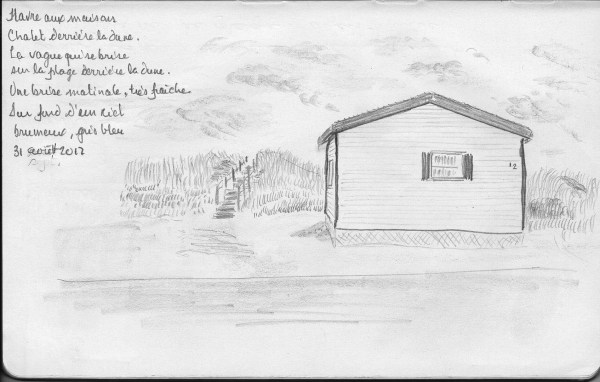 Havre aux maisons
Chalet derrière la dune.
La vague qui se brise
sur la plage derrière la dune.
Une brise matinale, très fraîche
Sur fond d'un ciel
brumeux, gris bleu
31 août 2017
12